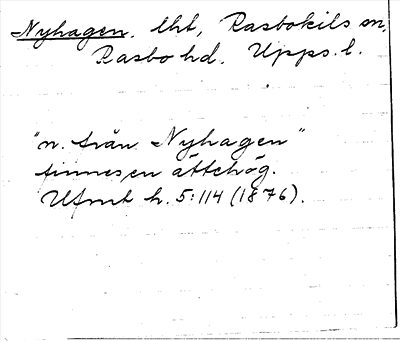 Nyhagen. lht, Rasbokils sn,
Rasbo hd. Upps. l.
"n. från Nyhagen"
finnes en ättehög.
Ufmt h. 5:114 (1876).